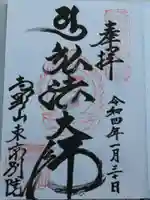 奉拝
令和四年一月三日
弘法大師
高野山東京別院